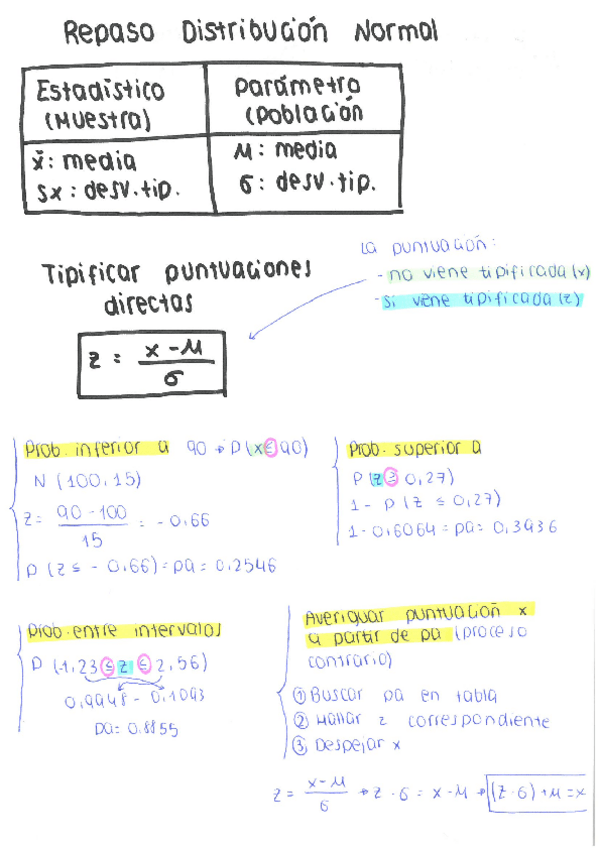 Repaso Distribución Normal
Estadístico (Muestra)
Parámetro (Población
x̄: media
Sx: desv. tip.
μ: media
σ: desv. tip.
La puntuación:
- no viene tipificada (x)
- si viene tipificada (z)
Tipificar puntuaciones directas
z = x - μ / σ
Prob. inferior a 90 → P(x ≤ 90)
N (100, 15)
z = 90 - 100 / 15 = - 0,66
P (z ≤ - 0,66) = pa = 0,2546
Prob. superior a
P (z ≥ 0,27)
1 - P (z ≤ 0,27)
1 - 0,6064 = pa = 0,3936
Prob. entre intervalos
P (-1,23 ≤ z ≤ 2,56)
0,9948 - 0,1093
pa = 0,8855
Averiguar puntuación x
a partir de pa (proceso
contrario)
① Buscar pa en tabla
② Hallar z correspondiente
③ Despejar x
z = x - μ / σ → z · σ = x - μ → (z · σ) + μ = x